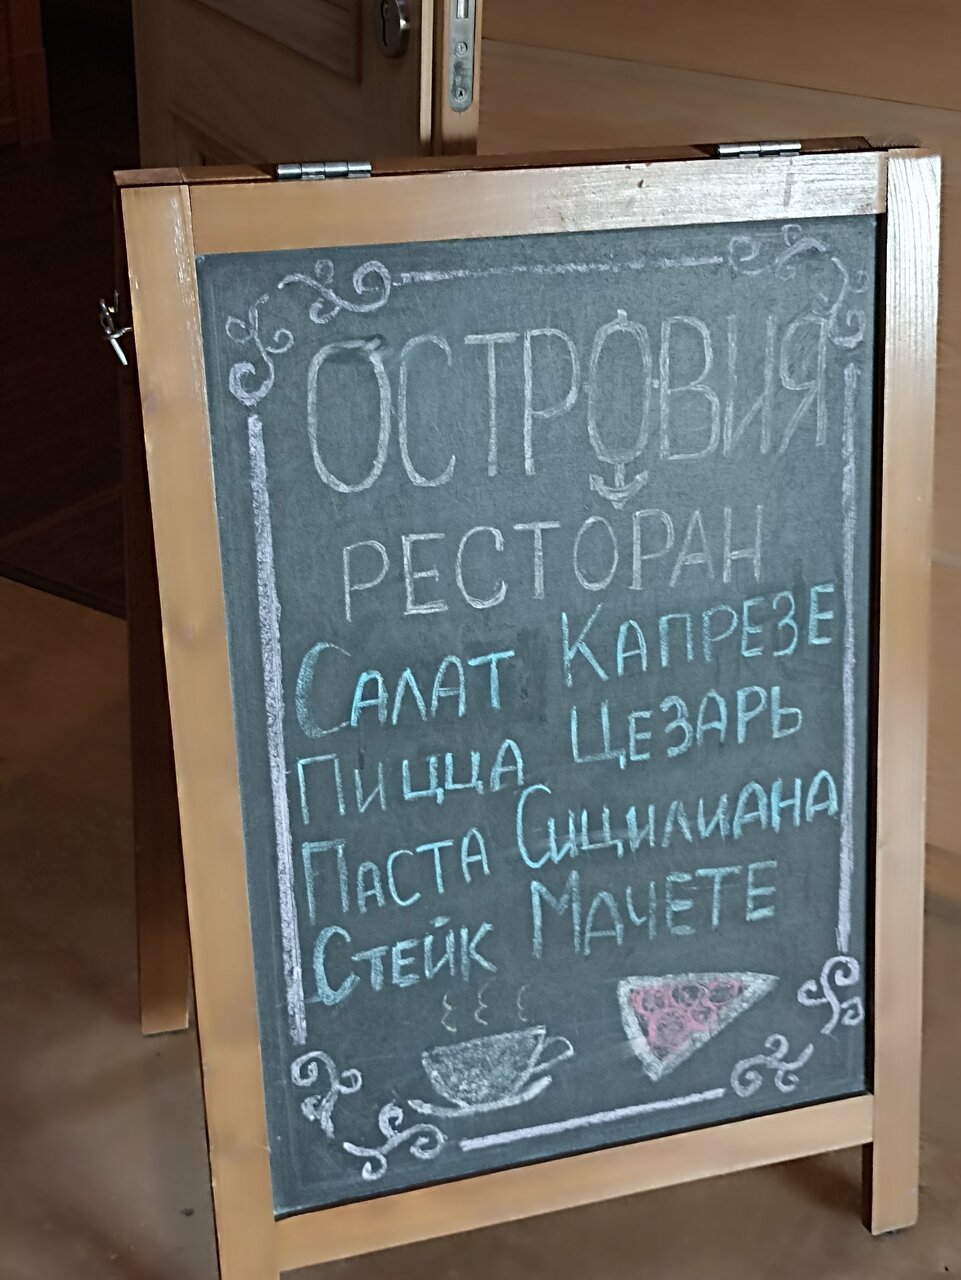 ОСТРОВИЯ
РЕСТОРАН
САЛАТ КАПРЕЗЕ
ПИЦЦА ЦЕЗАРЬ
ПАСТА СИЦИЛИАНА
СТЕЙК МАЧЕТЕ